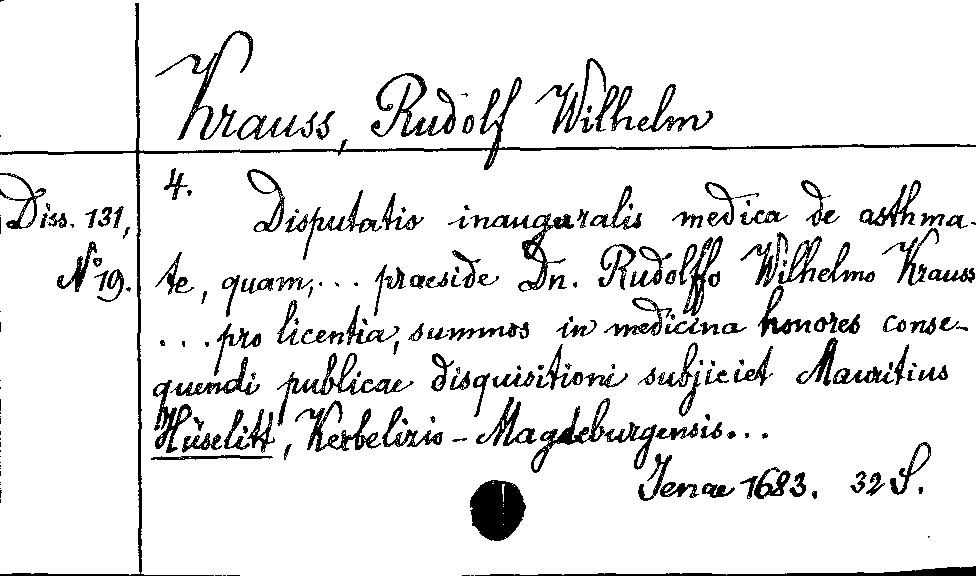 Krauss, Rudolf Wilhelm
4.
Diss. 131,
No 19.
Disputatio inauguralis medica de asthma-
te, quam,... praeside Dn. Rudolffo Wilhelmo Krauss
... pro licentia, summos in medicina honores conse-
quendi publicae disquisitioni subjiciet Mauritius
Hüselitt, Kerbelizio-Magdeburgensis...
Jenae 1683. 32 S.